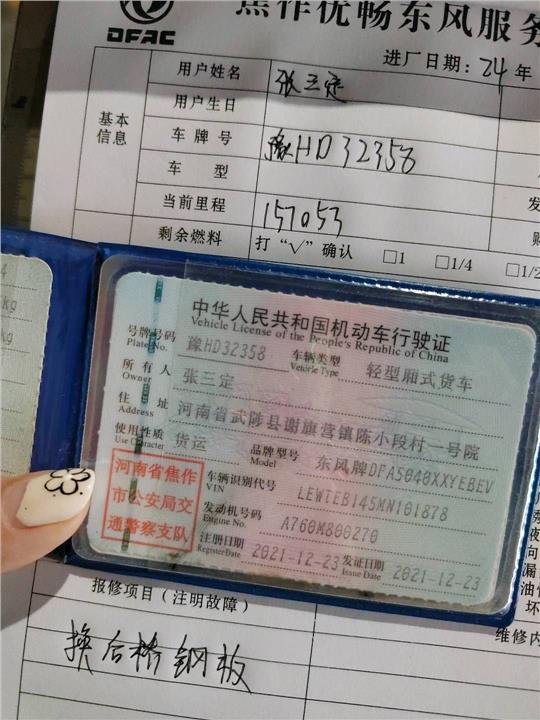 焦作优畅东风服务
DFAC
进厂日期: 24年
基本信息
用户姓名 张三定
用户生日
车牌号 豫HD32358
车 型
当前里程 157053
剩余燃料 打“√”确认 □1 □1/4 □1/2
kg
kg
中华人民共和国机动车行驶证
Vehicle License of the People's Republic of China
号牌号码 豫HD32358 车辆类型 轻型厢式货车
Plate No. Vehicle Type
所有人 张三定
Owner
住 址 河南省武陟县谢旗营镇陈小段村一号院
Address
使用性质 货运 品牌型号 东风牌DFA5040XXYEBEV
Use Character Model
河南省焦作市公安局交通警察支队
车辆识别代号 LEWTEB145MN101878
VIN
发动机号码 A760M800270
Engine No.
注册日期 2021-12-23 发证日期 2021-12-23
Register Date Issue Date
报修项目（注明故障）
维修内
换后桥钢板